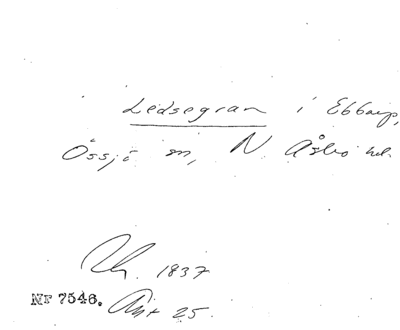 Ledsegran i Ebbarp,
Össjö sn, N. Åsbo hd.
1837
Nr 7546. Akt 25.